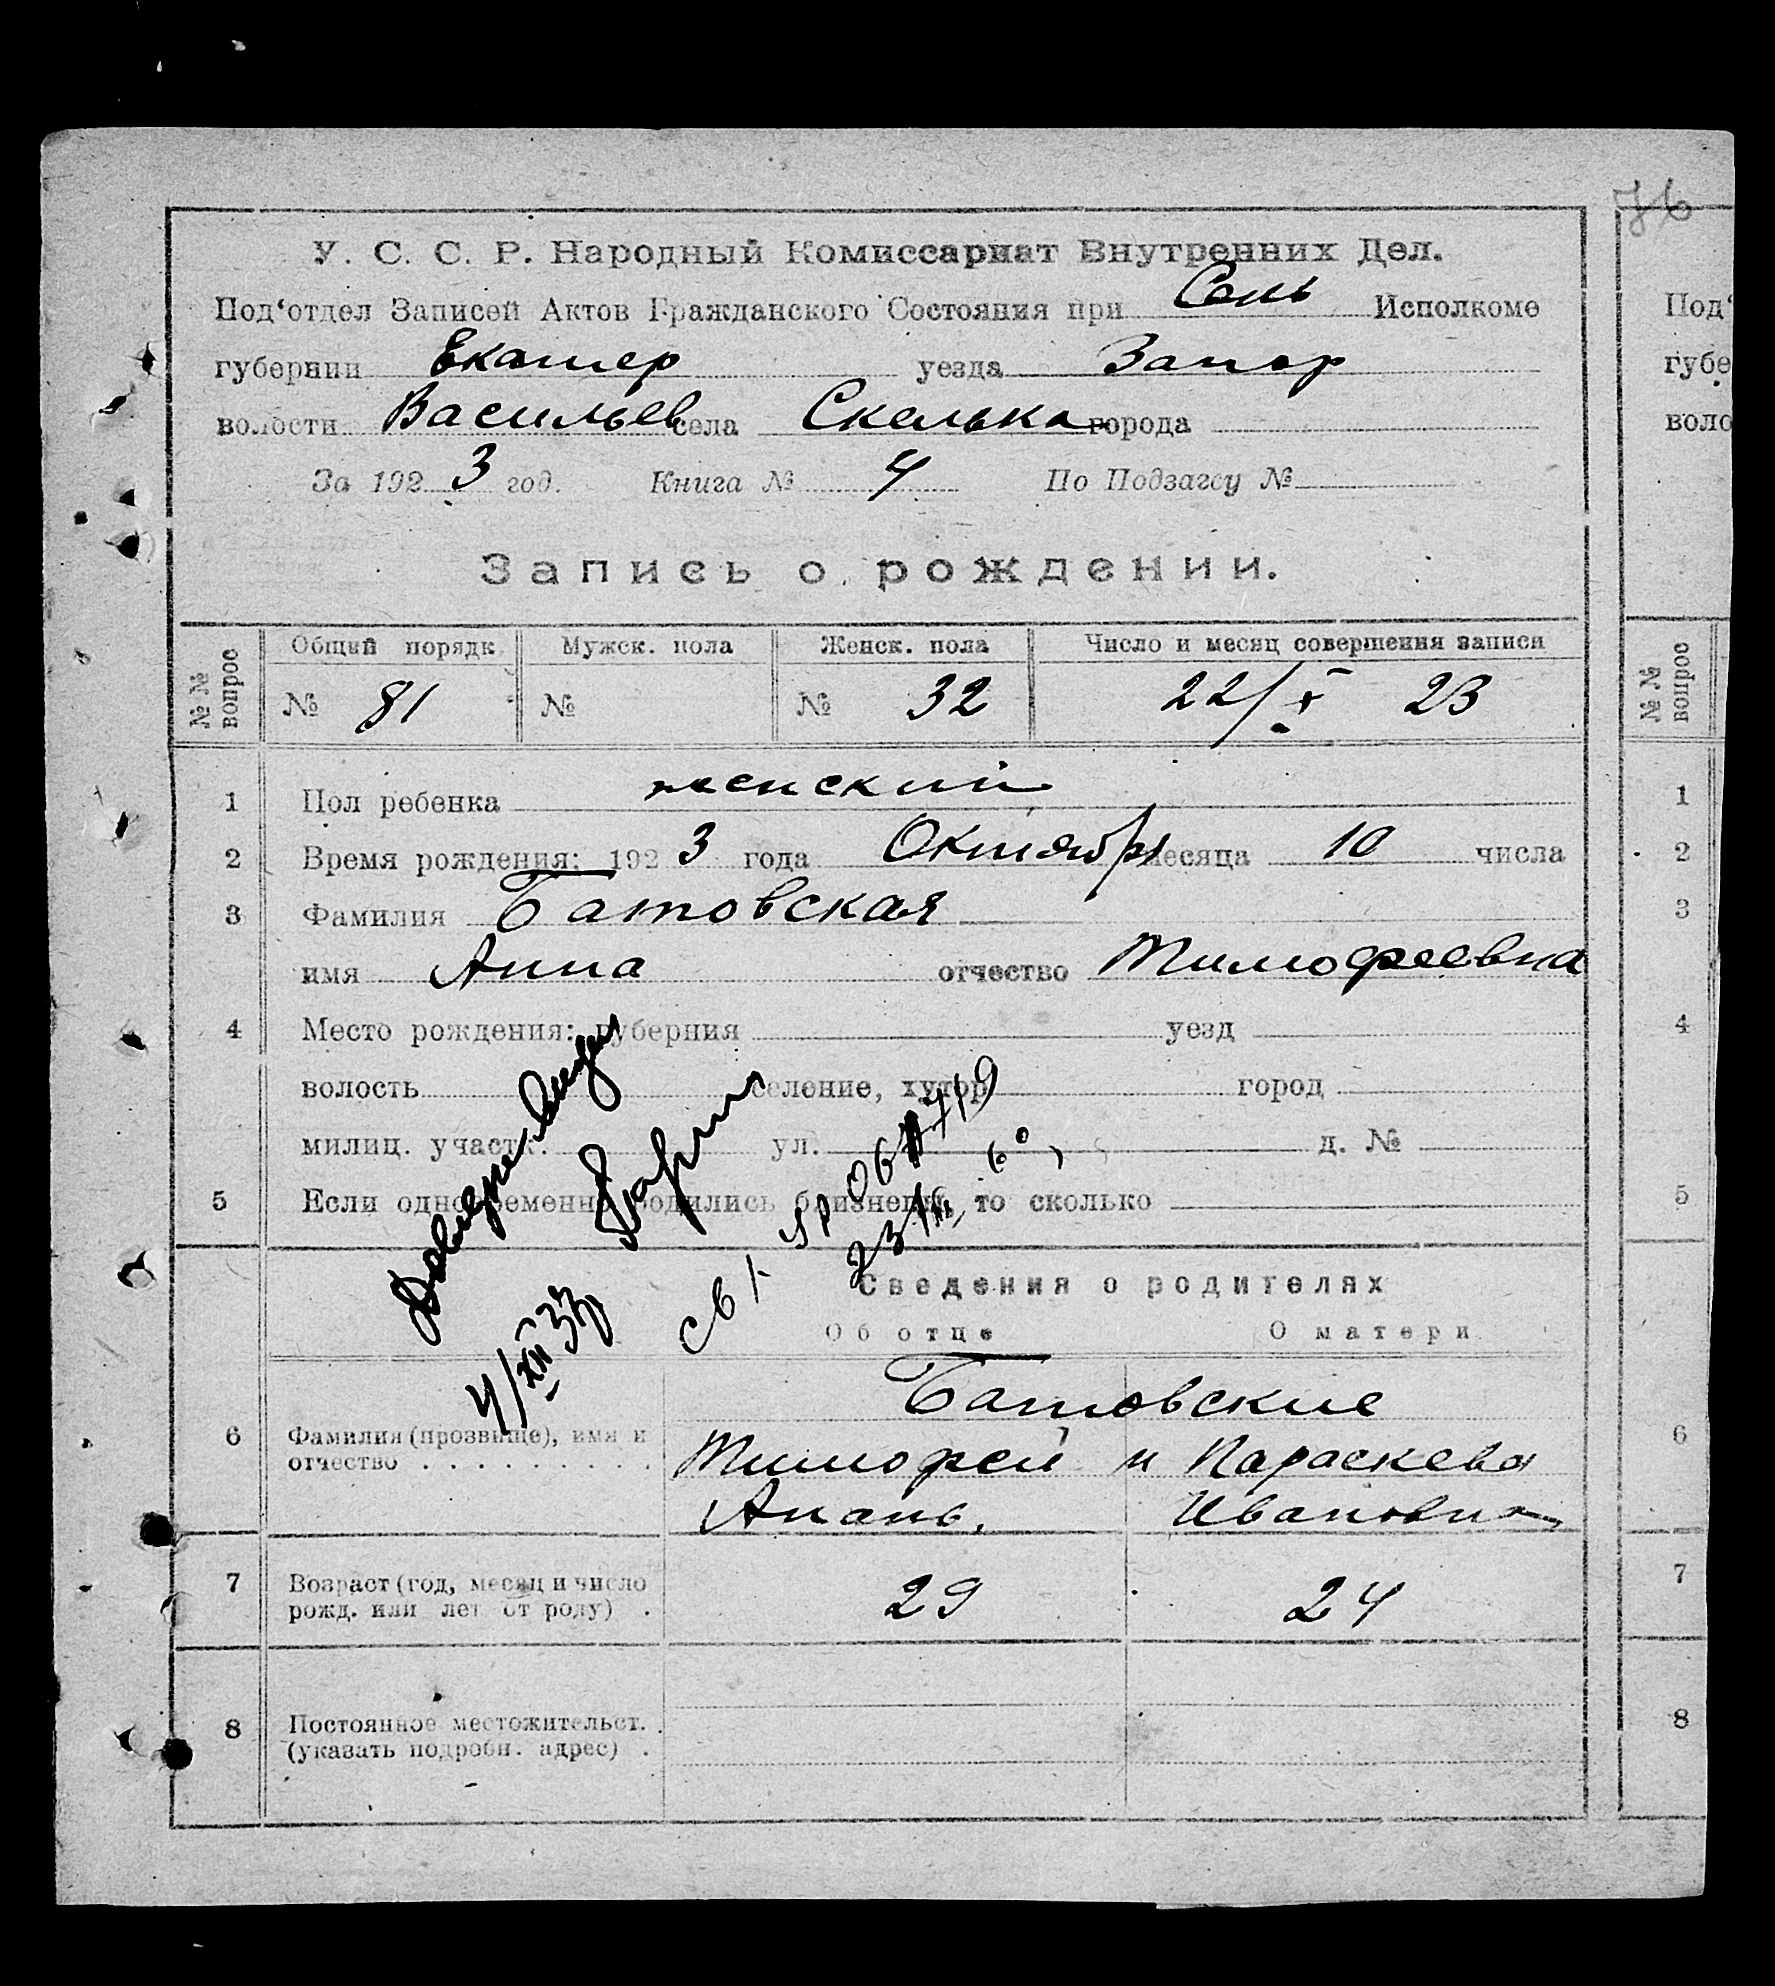 76
У. С. С. Р. Народный Комиссариат Внутренних Дел.
Под‘отдел Записей Актов Гражданского Состояния при Сель Исполкоме
губернии Екатер уезда Запор
волости Васильев села Скелька города
За 1923 год. Книга № 4 По Подзагсу №
Запись о рождении.
№№ вопрос Общий порядк Мужск. пола Женск. пола Число и месяц совершения записи
№ 81 № № 32 22/X 23
1 Пол ребенка женский
2 Время рождения: 1923 года Октября месяца 10 числа
3 Фамилия Батовская
имя Анна отчество Тимофеевна
4 Место рождения: губерния уезд
волость селение, хутор город
милиц. участ. ул. д. №
5 Если одновременно родились близнецы, то сколько
4/XII 37
Сведения о родителях
Об отце О матери
6 Фамилия (прозвище), имя и отчество
Батовские
Тимофей и Параскева
Анань. Ивановна
7 Возраст (год, месяц и число рожд. или лет от роду) 29 24
8 Постоянное местожительст. (указать подробн. адрес)
Под‘
губе
воло
№№ вопрос
1
2
3
4
5
6
7
8